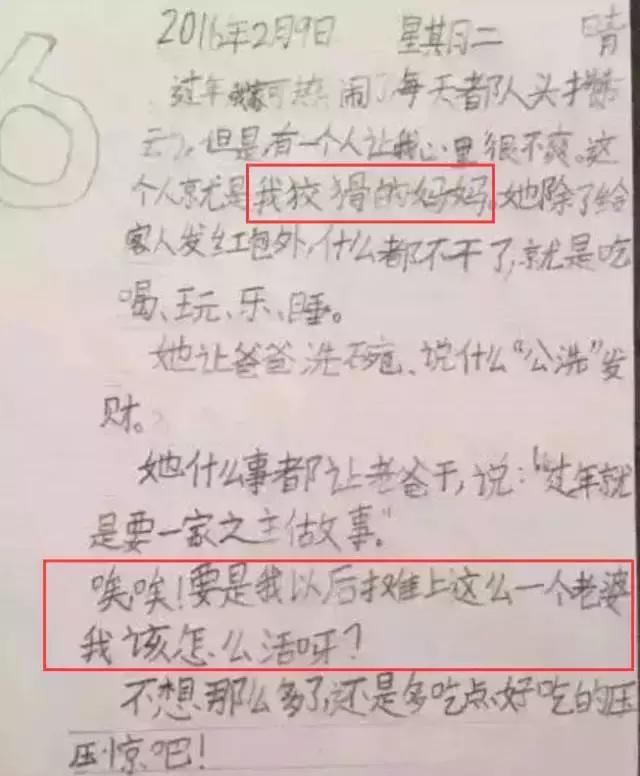 2016年2月9日 星期二 晴
过年可热闹了每天都队头挤
云),但是,有一个人让我心里很不爽。这
个人就是我狡猾的妈妈。她除了给
客人发红包外,什么都不干了,就是吃
喝、玩、乐、睡。
她让爸爸洗碗、说什么“公洗”发
财。
她什么事都让老爸干,说:“过年就
是要一家之主做故事。”
唉唉!要是我以后摊上这么一个老婆
我该怎么活呀?
不想那么多了,还是多吃点好吃的压
压惊吧!